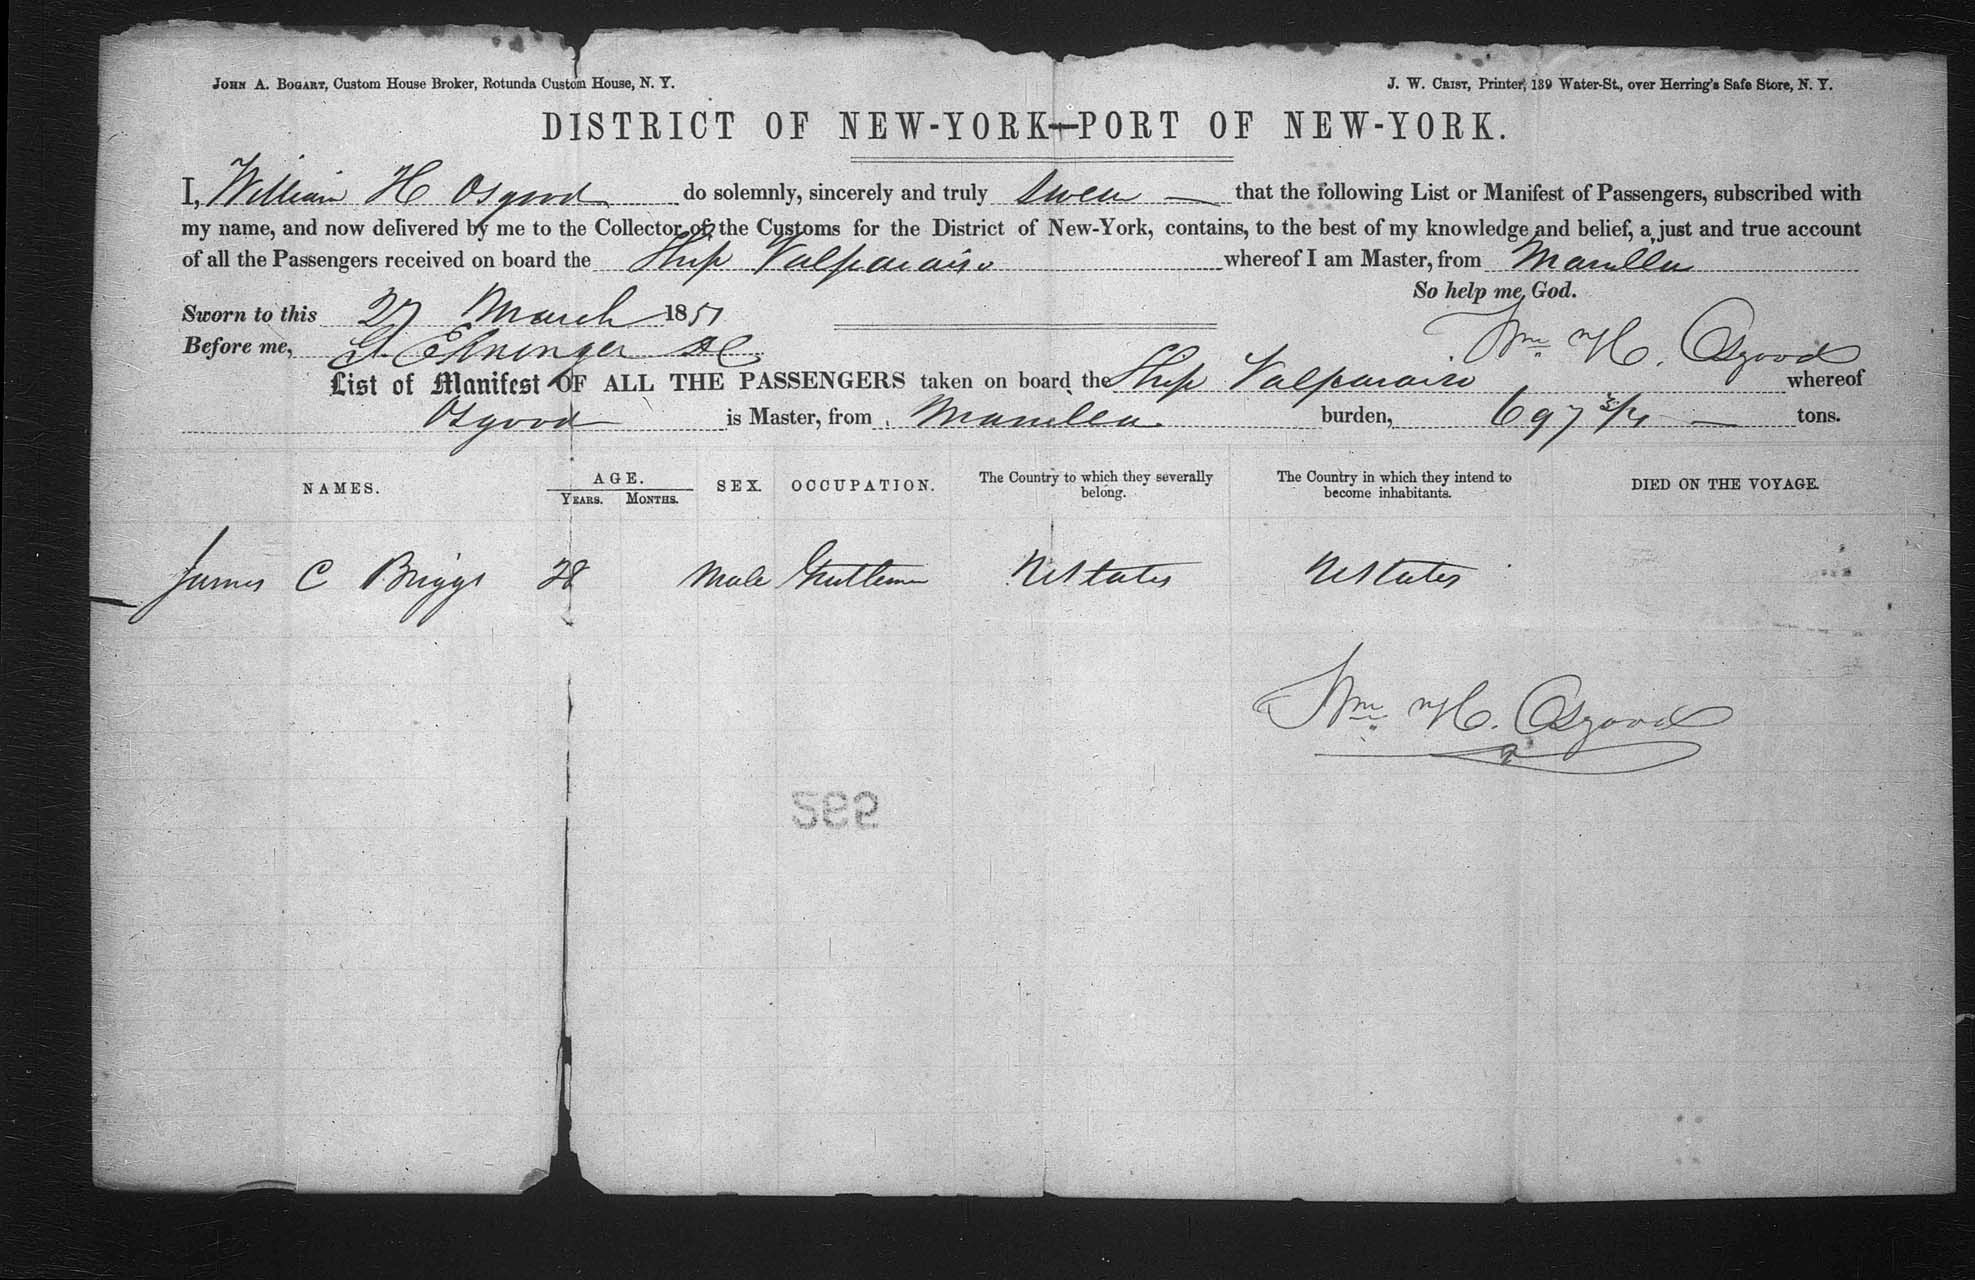 JOHN A. BOGART, Custom House Broker, Rotunda Custom House, N. Y.
J. W. CRIST, Printer, 139 Water-St., over Herring's Safe Store, N. Y.
DISTRICT OF NEW-YORK—PORT OF NEW-YORK.
I, William H Osgood do solemnly, sincerely and truly swear — that the following List or Manifest of Passengers, subscribed with
my name, and now delivered by me to the Collector of the Customs for the District of New-York, contains, to the best of my knowledge and belief, a just and true account
of all the Passengers received on board the Ship Valparaiso whereof I am Master, from Manilla
So help me God.
Sworn to this 27 March 1851
Wm H. Osgood
Before me,
List of Manifest OF ALL THE PASSENGERS taken on board the Ship Valparaiso whereof
Osgood is Master, from Manilla burden, 697 3/4 — tons.
NAMES. AGE. SEX. OCCUPATION. The Country to which they severally belong. The Country in which they intend to become inhabitants. DIED ON THE VOYAGE.
YEARS. MONTHS.
James C Briggs 28 Male Gentleman UStates UStates
Wm H. Osgood
265